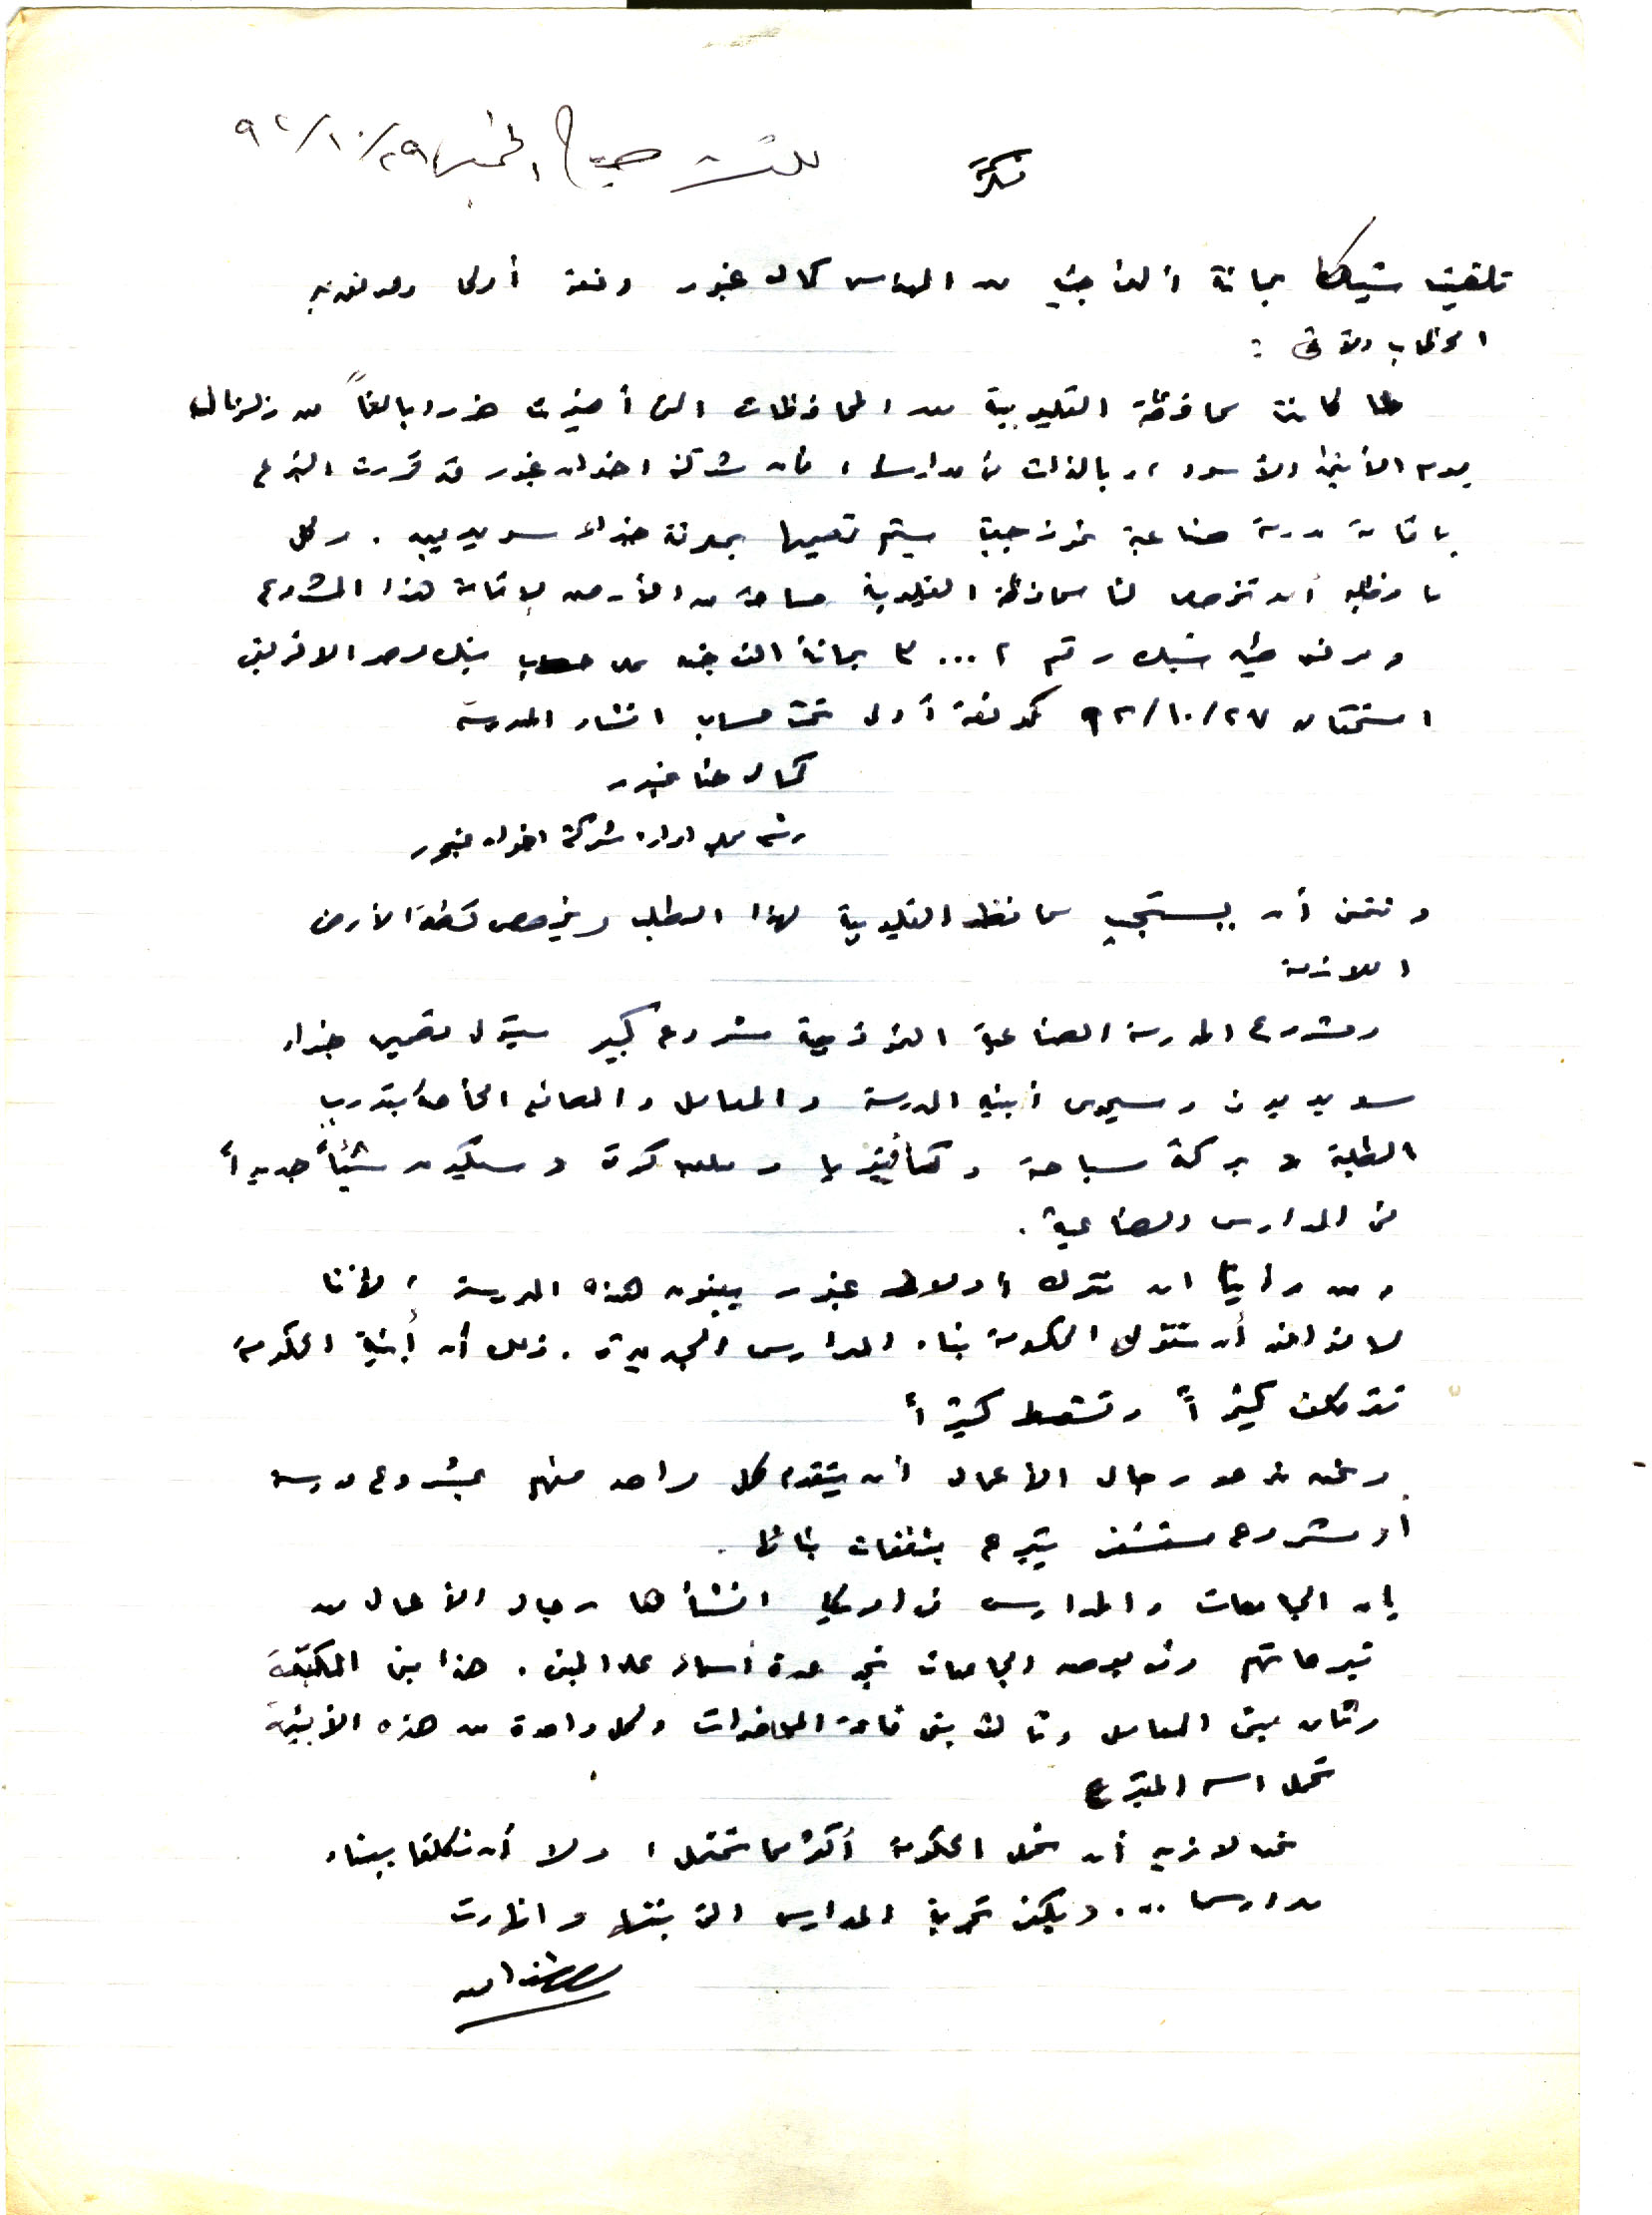 للنشر صباح الخميس ٩٢/١٠/٢٩
فكرة
تلقيت شيكا بمائة ألف جنيه من المهندس كمال غبور دفعة أولى ومرفق به
الخطاب الآتى :
لما كانت محافظة القليوبية من المحافظات التى أضيرت ضررا بالغاً من زلزال
يوم الأثنين الأسود ، وبالذات فى مدارسها ، فان شركة اخوان غبور قد قررت التبرع
باقامة مدرسة صناعية نموذجية سيتم تصميمها بمعرفة خبراء سويديين . وكل
ما نطلبه أن تخصص لنا محافظة القليوبية مساحة من الأرض لاقامة هذا المشروع
ومرفق طيه شيك رقم ٣٠٠٠٢ بمائة الف جنيه على حساب بنك مصر الافريقى
استحقاق ٩٢/١٠/٢٧ كدفعة أولى تحت حساب انشاء المدرسة
كمال حنا غبور
رئيس مجلس ادارة شركة اخوان غبور
ونتمنى أن يستجيب محافظ القليوبية لهذا الطلب ويخصص قطعة الأرض
اللازمة
ومشروع المدرسة الصناعية النموذجية مشروع كبير سيتولى تصميمه خبراء
سويديون وسيحوى أبنية المدرسة والمعامل والمصانع الخاصة بتدريب
الطلبة و بركة سباحة وكافتيريا وملعب كرة وستكون شيئاً جديداً
فى المدارس الصناعية .
ومن رأينا ان نترك أولاد غبور يبنون هذه المدرسة ، لأننا
لا نوافق أن تتولى الحكومة بناء المدارس الجديدة . ذلك أن أبنية الحكومة
تتكلف كثيراً وتسقط كثيراً
ونحن ندعو رجال الأعمال أن يتقدم كل واحد منهم بمشروع مدرسة
أو مشروع مستشفى يتبرع بنفقات بنائها .
إن الجامعات والمدارس فى امريكا انشأها رجال الأعمال من
تبرعاتهم وفى بعض الجامعات تجد عدة أسماء على المبنى . هذا مبنى المكتبة
وثان مبنى المعامل وثالث مبنى قاعة المحاضرات وكل واحدة من هذه الأبنية
تحمل اسم المتبرع
نحن لا نريد أن نحمل الحكومة أكثر مما تحتمل ، ولا أن نكلفها ببناء
مدارسها ... ويكفى تجربة المدارس التى بنتها وانهارت
مصطفى أمين